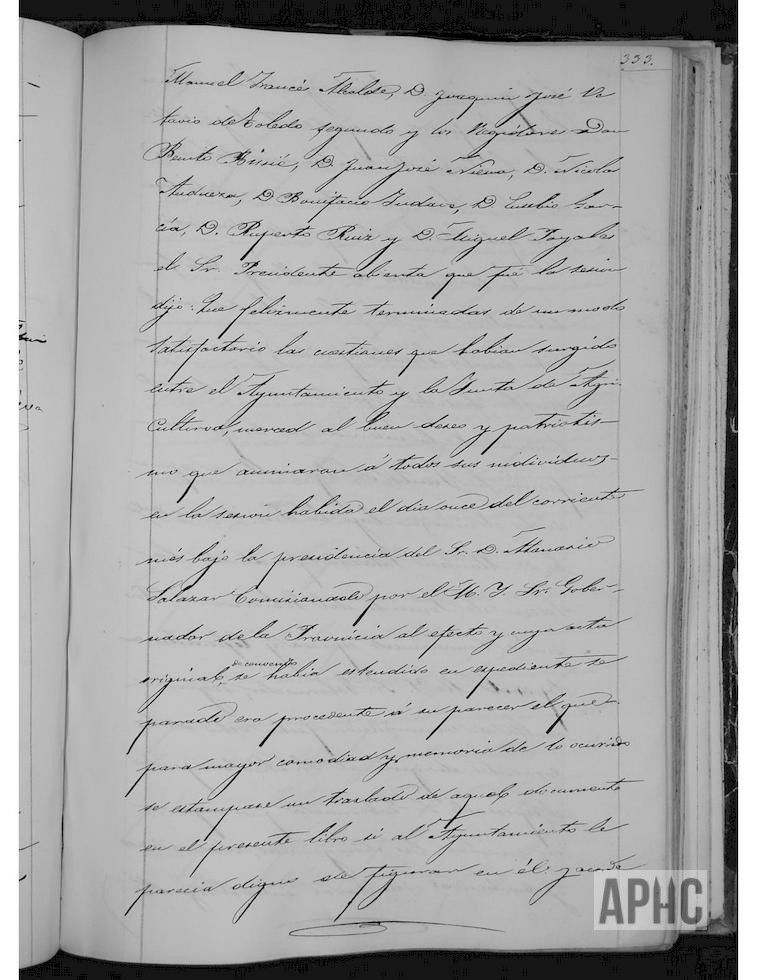 333.
Manuel Francés Alcalde, D. Joaquin José Oc
tavio de Toledo segundo y los Regidores Don
Benito D. Juan José Nieva, D. Nicolas
Andueza, D Bonifacio D. Eusebio Gar-
cía, D. Ruperto Ruiz y D. Miguel
el Sr. Presidente abierta que fué la sesion
dijo: Que felizmente terminadas de un modo
satisfactorio las cuestiones que habian surgido
entre el Ayuntamiento y la Junta de Agri
Cultura, merced al buen deseo y patriotis-
mo que animaran á todos sus individuos-
en la sesion habida el dia once del corriente
més bajo la presidencia del Sr. D. Atanasio
Salazar Comisionado por el M. Y. Sr. Gober-
nador de la Provincia al efecto y cuya acta
original, de convenio se habia estendido en espediente se
parado era procedente á su parecer el que
para mayor comodidad y memoria de lo ocurrido
se estampase un traslado de aquel documento
en el presente libro si al Ayuntamiento le
parecia digno de figurar en él.
APHC